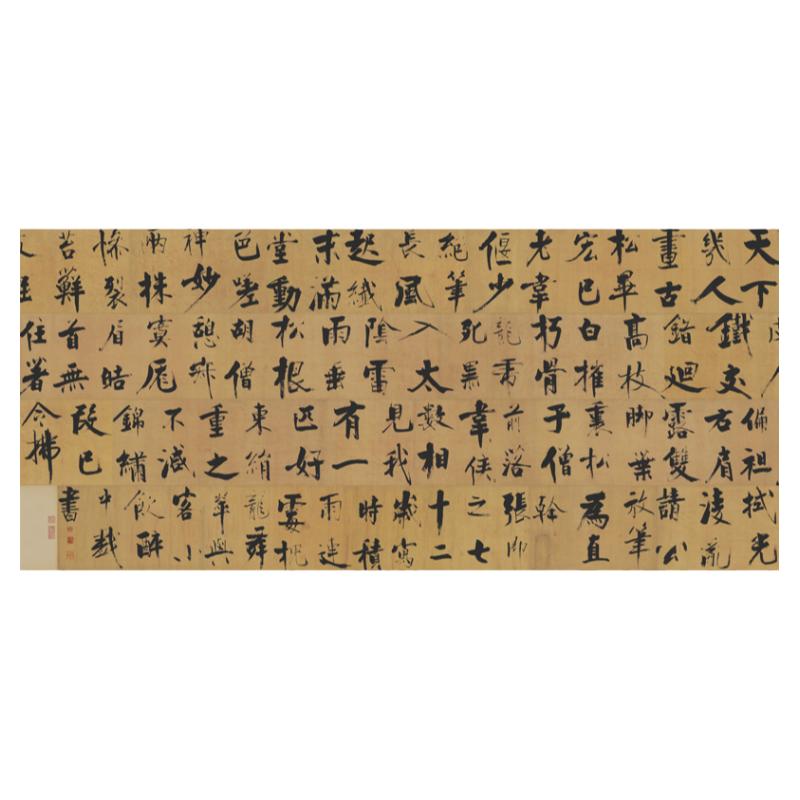 天下幾人畫古松畢宏已老韋偃少絕筆長風起纖末滿堂動色嗟神妙兩株慘裂苔蘚
鐵交錯迴高枝白摧朽骨龍虎死黑入太陰雷雨垂松根胡僧憩寂寞厖眉皓首無住著
偏袒右肩露雙脚葉裏松子僧前落韋侯數相見我有一匹好東絹重之不減錦繡段已令拂
拭光凌亂請公放筆為直幹張即之七十二歲寫時積雨連霎龍舞華與客小飲醉中戲書